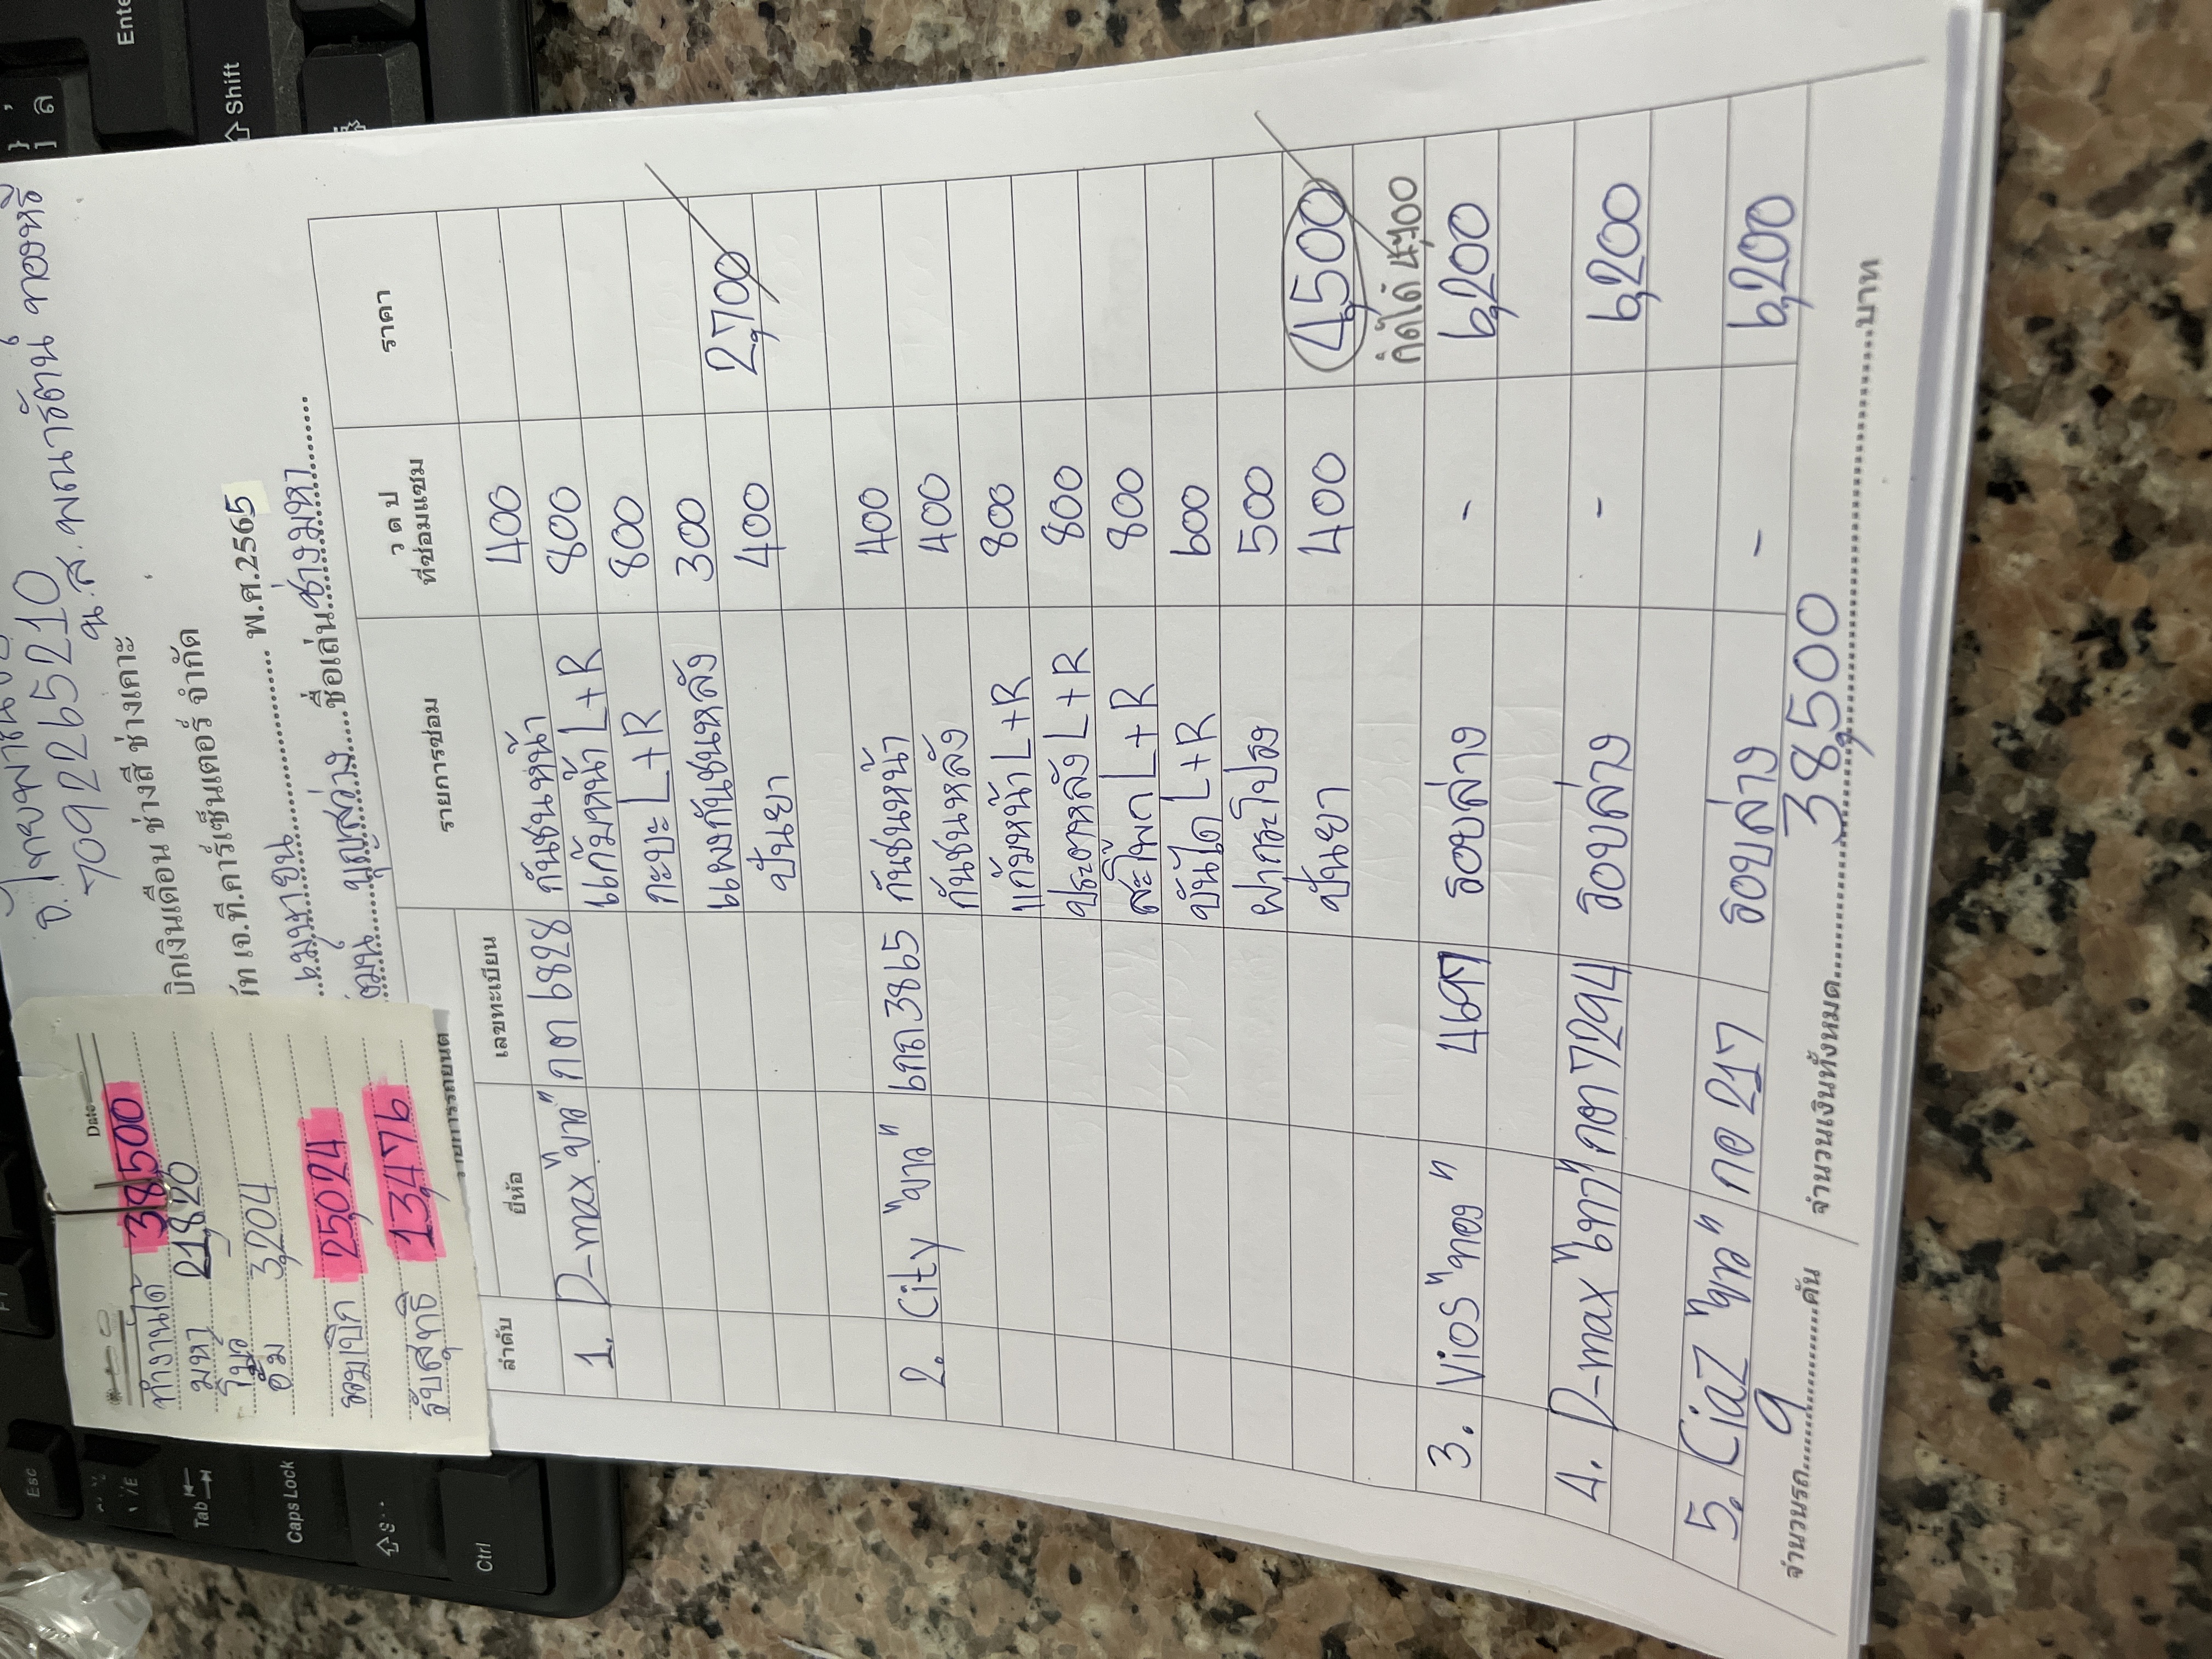 7092265210
น.ส.
ช่างสี ช่างเคาะ
เจ.ที.คาร์เซ็นเตอร์ จำกัด
เมษายน พ.ศ.2565
บุญสว่าง ชื่อเล่น ช่างมหา
Date
ทำงานได้ 38,500
มหา 21,820
อิ๋ม 3,204
รวมเบิก 25,024
รับสุทธิ 13,476
ลำดับ ยี่ห้อ เลขทะเบียน รายการซ่อม ว ด ป ที่ซ่อมแซม ราคา
1. D-max "ขาว" กต 6828 กันชนหน้า 400
แก้มหน้า L+R 800
กะบะ L+R 800
แผงกันชนหลัง 300 2,700
ปั่นยา 400
2. City "ขาว" 3865 กันชนหน้า 400
กันชนหลัง 400
แก้มหน้า L+R 800
ประตูหลัง L+R 800
สะโพก L+R 800
บันได L+R 600
ฝากระโปรง 500
ปั่นยา 400 4,500
คิดได้ 4,700
3. Vios "ทอง" 4697 รอบล่าง - 6,200
4. D-max "เทา" กต 7294 รอบล่าง - 6,200
5. Ciaz "ขาว" กอ 217 รอบล่าง - 6,200
จำนวนรถ 9 คัน จำนวนเงินทั้งหมด 38,500 บาท
Esc
Tab
Caps Lock
Ctrl
Enter
Shift